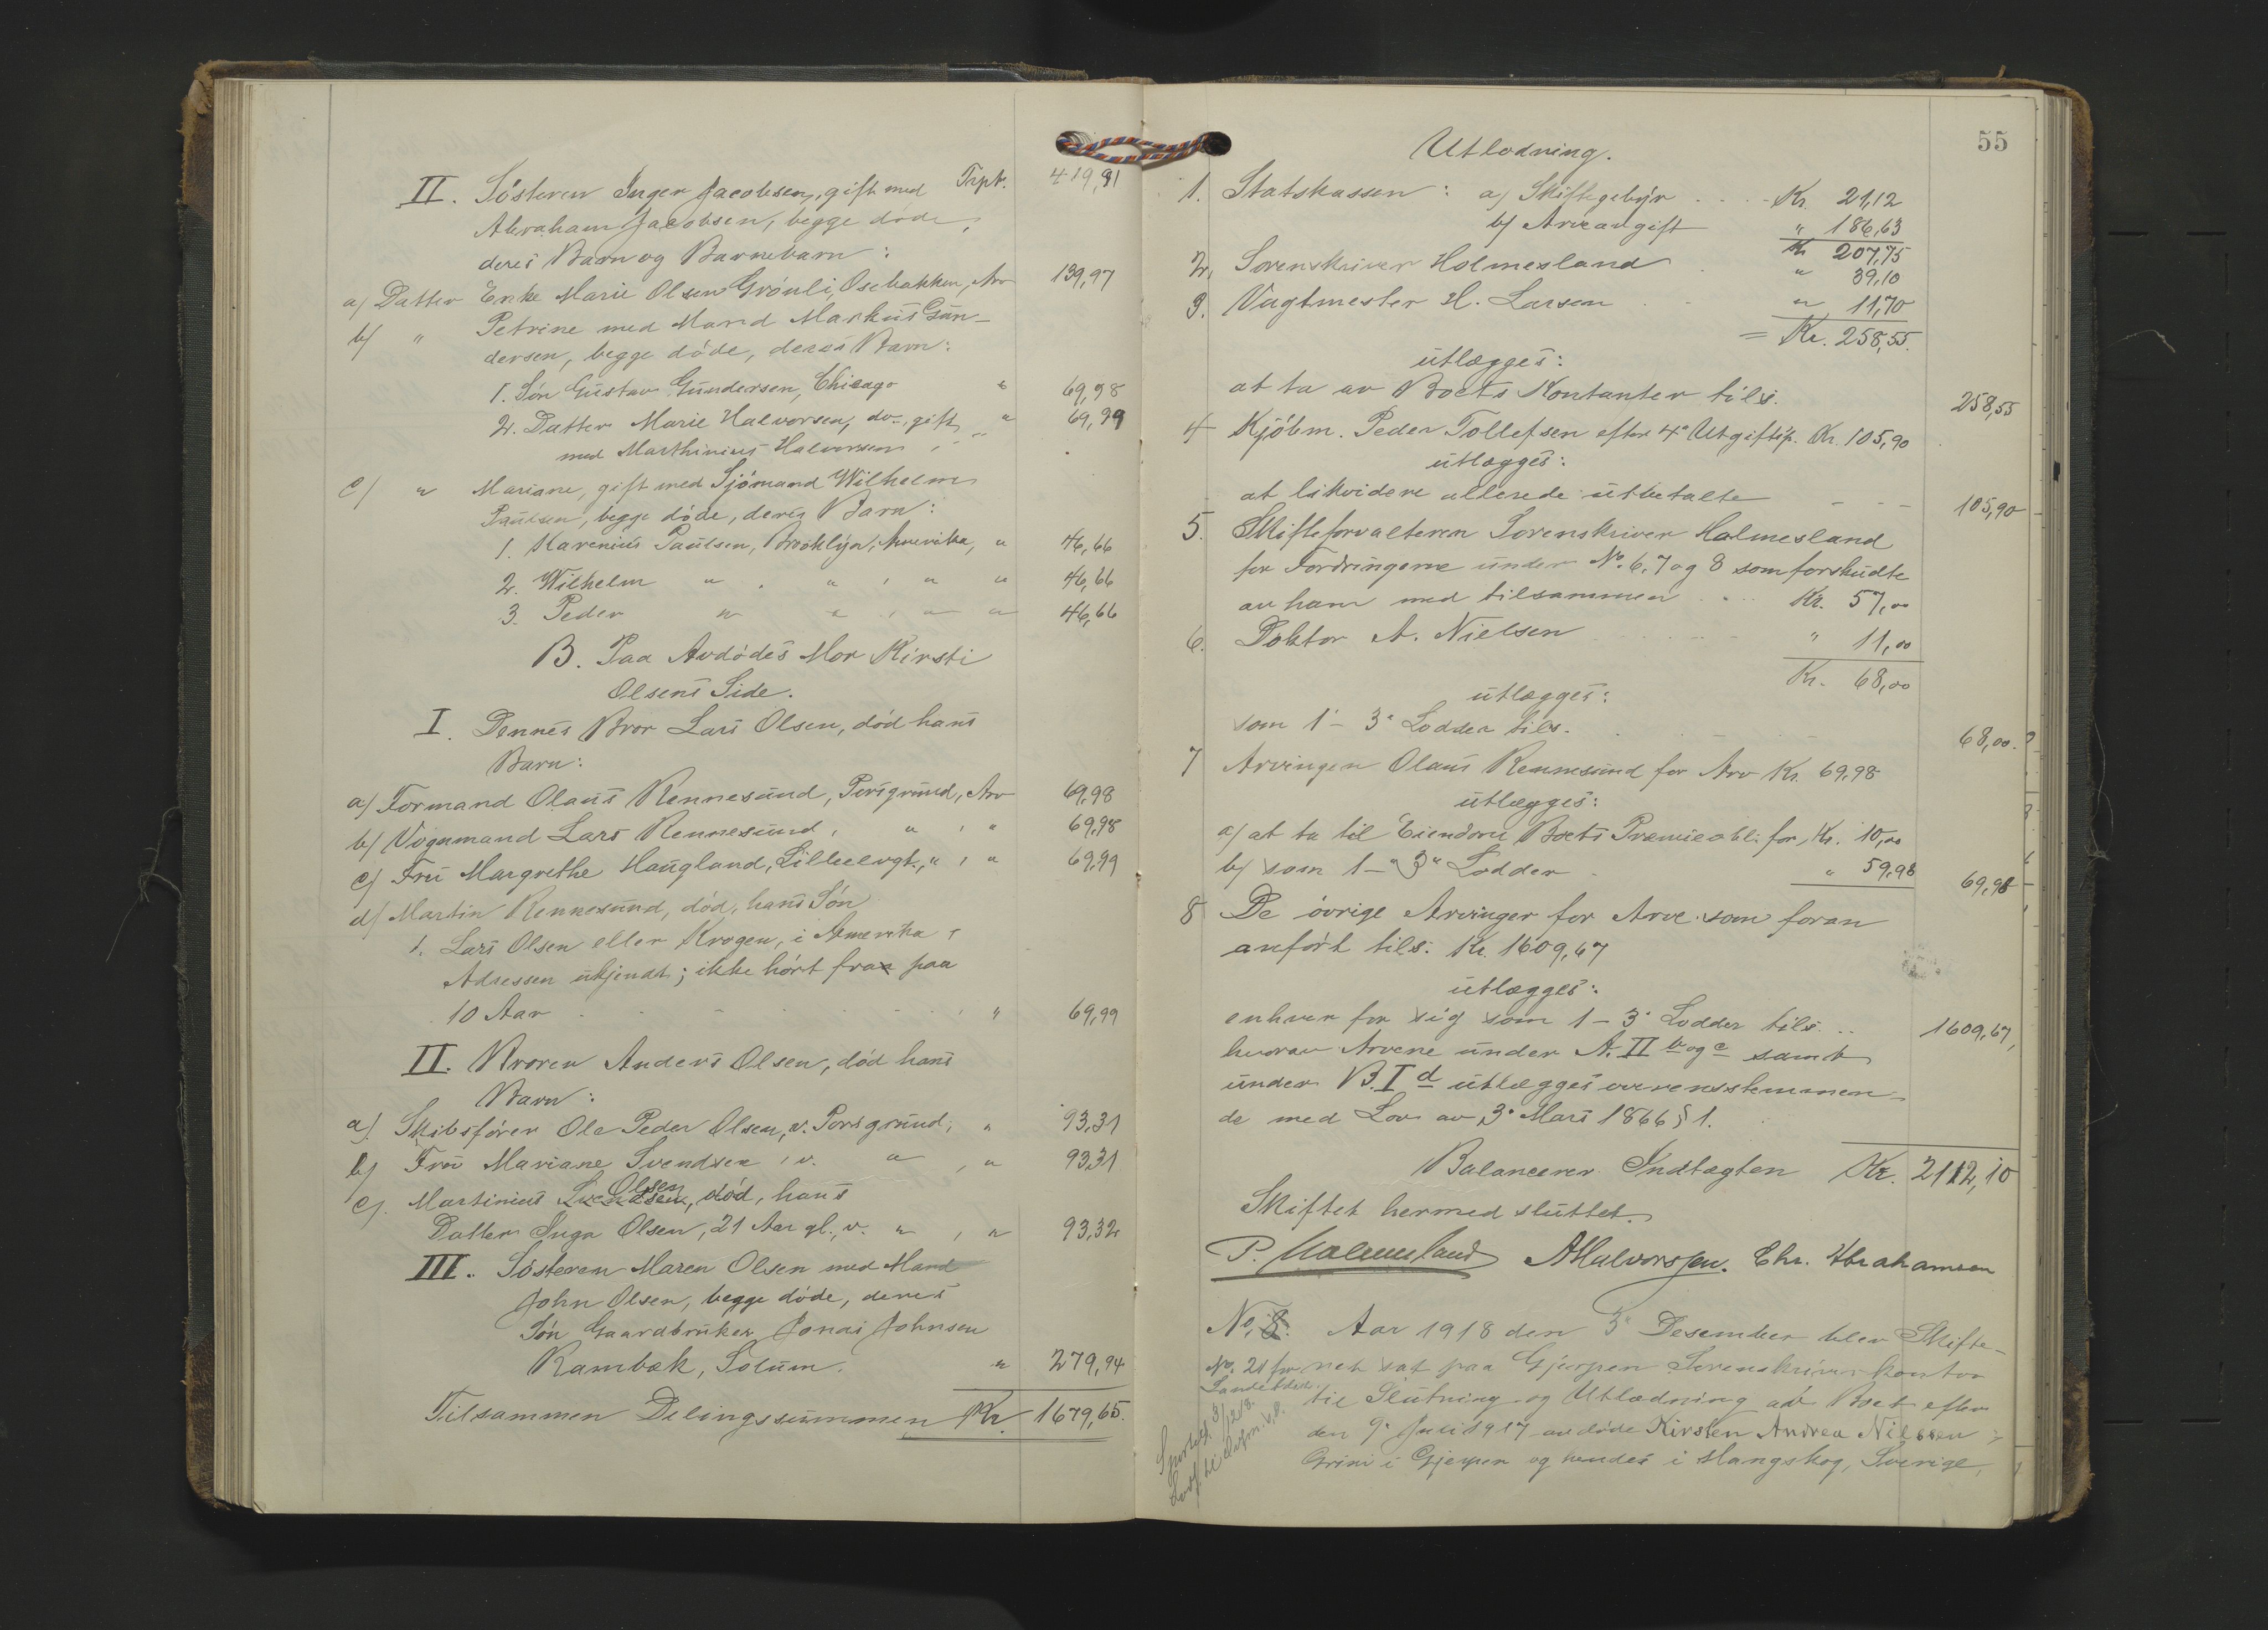 Trpt. 419,91
II. Søsteren Inger Jacobsen, gift med
Abraham Jacobsen, begge døde,
deres Barn og Barnebarn:
a) Datter Enke Marie Olsen Grönli, Osebakken, Arv 139,97
b) " Petrine med Mand Markus Gun-
dersen, begge døde, deres Barn:
1. Søn Gustav Gundersen, Chicago " 69,98
2. Datter Marie Halvorsen, do., gift " 69,99
med Marthinius Halvorsen
c) " Mariane, gift med Sjömand Wilhelm
Paulsen, begge døde, deres Barn:
1. Karenius Paulsen, Brooklyn, Amerika, " 46,66
2. Wilhelm " " , " " 46,66
3. Peder " " , " " 46,66
B. Paa Avdødes Mor Kirsti
Olsens Side.
I. Dennes Bror Lars Olsen, död hans
Barn:
a) Formand Olaus Rennesund, Porsgrund, Arv 69,98
b) Vognmand Lars Rennesund, " , " 69,98
c) Fru Margrethe Haugland, Lilleelvgt., " , " 69,99
d) Martin Rennesund, död, hans Søn
1. Lars Olsen eller Krogen, i Amerika,
Adressen ukjendt; ikke hört fra paa
10 Aar " 69,99
II. Broren Anders Olsen, död hans
Barn:
a) Skibsfører Ole Peder Olsen, v. Porsgrund, " 93,31
b) Fru Mariane Svendsen, v. " , " 93,31
Olsen
c) Martinius Svendsen, död, hans
Datter Inga Olsen, 21 Aar gl., v. " , " 93,32
III. Søsteren Maren Olsen med Mand
John Olsen, begge døde, deres
Søn Gaardbruker Jonas Johnsen
Rambæk, Solum. " 279,94
Tilsammen Delingssummen Kr. 1679,65.
55
Utlodning.
1. Statskassen: a) Skiftegebyr Kr. 21,12
b) Arveavgift " 186,63
Kr. 207,75
2. Sorenskriver Holmesland " 39,10
3. Vagtmester H. Larsen " 11,70
= Kr. 258,55.
utlægges:
at ta av Boets Kontanter tils. 258,55
4 Kjöbm. Peder Tollefsen efter 4° Utgiftsp. Kr. 105,90
utlægges:
at likvidere allerede utbetalte 105,90
5. Skifteforvalteren Sorenskriver Holmesland
for Fordringerne under No. 6, 7 og 8 som forskudte
av ham med tilsammen Kr. 57,00
6. Doktor A. Nielsen " 11,00
Kr. 68,00
utlægges:
som 1°-3° Lodder tils. 68,00.
7 Arvingen Olaus Rennesund for Arv Kr. 69,98
utlægges:
a) at ta til Eiendom Boets Premieobli. for, Kr. 10,00
b) som 1-°3° Lodder " 59,98 69,98
8 De øvrige Arvinger for Arve som foran
anført tils. Kr. 1609,67
utlægges:
enhver for sig som 1-3° Lodder tils. 1609,67,
hvorav Arvene under A. II b og c samt
under B. I d utlægges overensstemmen-
de med Lov av 3° Mars 1866 § 1.
Balancerer Indtægten Kr. 2112,10
Skiftet hermed sluttet.
P. Holmesland AHalvorssen. Chr. Abrahamsen
No. 8. Aar 1918 den 3° Desember blev Skifte-
No. 21 for ret sat paa Gjerpen Sorenskriverkontor
til Slutning og Utlodning av Boet efter
den 9° Juli 1917 avdøde Kirsten Andrea Nilssen
Grini i Gjerpen og hendes i Mangskog, Sverige,